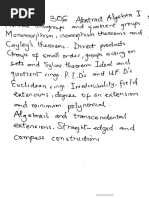 306 Abstract Algebra I
subgroups and quotient groups
Monomorphism, isomorphism theorems and
Cayley's theorems. Direct products
Groups of small order, groups acting on
sets and Sylows theorem. Ideal and
quotient ring. P.I.D's and U.F.D's
Euclidean rings. Irreducibility, field
extensions, degree of an extension
and minimum polynomial.
Algebraic and transcendental
extensions. Straight-edged and
compass constructions